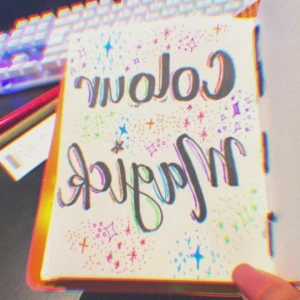 Colour
Magick